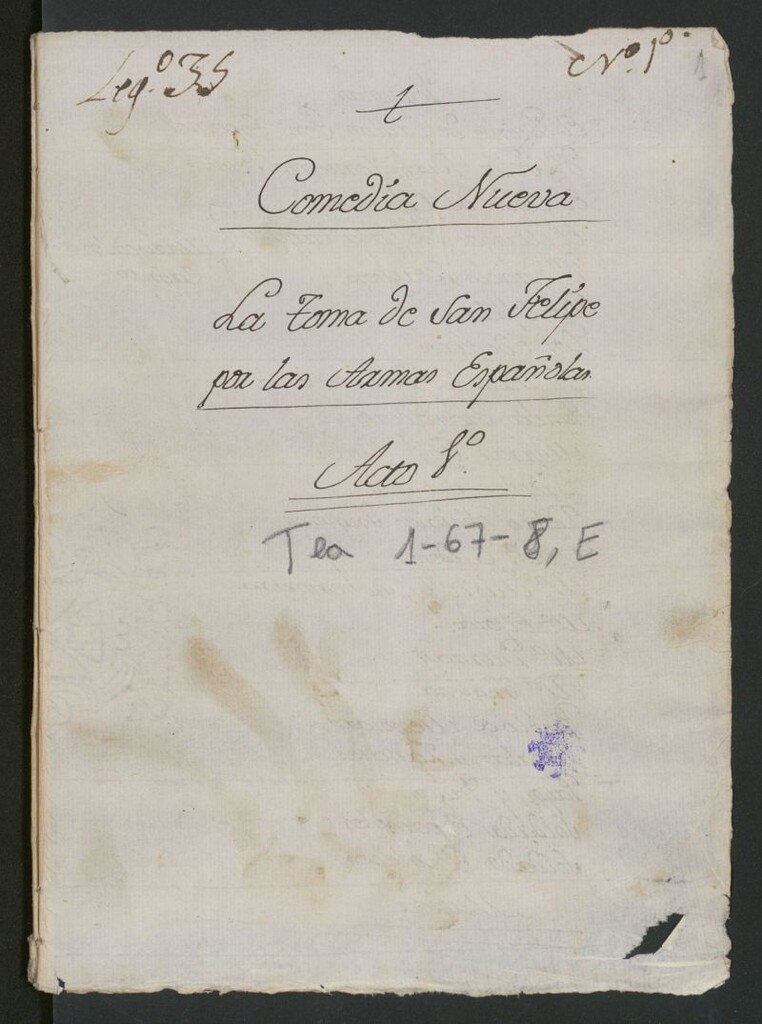 Leg.º 35
Nº. 1º.
1
Comedia Nueva
La toma de San Felipe
por las Armas Españolas.
Acto 1º.
Tea 1-67-8, E